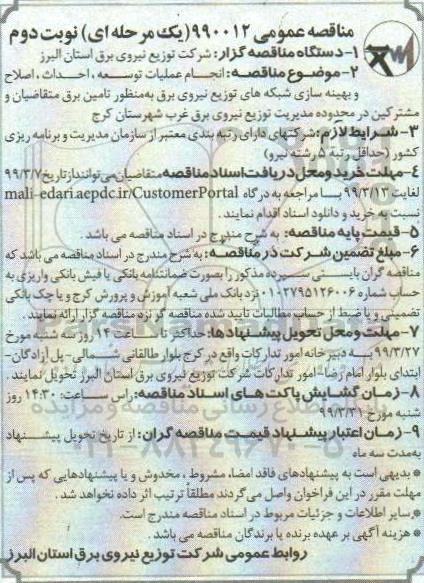 مناقصه عمومی ۹۹۰۰۱۲(یک مرحله ای) نوبت دوم
۱-دستگاه مناقصه گزار: شرکت توزیع نیروی برق استان البرز
۲-موضوع مناقصه: انجام عملیات توسعه ، احداث ، اصلاح
و بهینه سازی شبکه های توزیع نیروی برق به‌منظور تامین برق متقاضیان و
مشترکین در محدوده مدیریت توزیع نیروی برق غرب شهرستان کرج
۳-شرایط لازم: شرکتهای دارای رتبه بندی معتبر از سازمان مدیریت و برنامه ریزی
کشور (حداقل رتبه ۵ رشته نیرو)
۴-مهلت خرید و محل دریافت اسناد مناقصه: متقاضیان می‌توانند از تاریخ ۹۹/۳/۷
لغایت ۹۹/۳/۱۳ با مراجعه به درگاه mali-edari.aepdc.ir/CustomerPortal
نسبت به خرید و دانلود اسناد اقدام نمایند .
۵-قیمت پایه مناقصه: به شرح مندرج در اسناد مناقصه می باشد .
۶-مبلغ تضمین شرکت در مناقصه: به شرح مندرج در اسناد مناقصه می باشد که
مناقصه گران بایستی سپرده مذکور را بصورت ضمانتنامه بانکی یا فیش بانکی واریزی به
حساب شماره ۰۱۰۲۷۹۵۱۲۶۰۰۶ نزد بانک ملی شعبه آموزش و پرورش کرج و یا چک بانکی
تضمینی و یا ضبط از حساب مطالبات تایید شده مناقصه گر نزد مناقصه گزار ارائه نمایند .
۷-مهلت و محل تحویل پیشنهادها: حداکثر تا ساعت ۱۴ روز سه شنبه مورخ
۹۹/۳/۲۷ به دبیرخانه امور تدارکات واقع در کرج بلوار طالقانی شمالی-پل آزادگان-
ابتدای بلوار امام رضا-امور تدارکات شرکت توزیع نیروی برق استان البرز تحویل نمایند .
۸-زمان گشایش پاکت های اسناد مناقصه: راس ساعت: ۱۴:۳۰ روز
شنبه مورخ ۹۹/۳/۳۱
۹-زمان اعتبار پیشنهاد قیمت مناقصه گران: از تاریخ تحویل پیشنهاد
به‌مدت سه ماه
*بدیهی است به پیشنهادهای فاقد امضا، مشروط ، مخدوش و یا پیشنهادهایی که پس از
مهلت مقرر در این فراخوان واصل می گردند مطلقاً ترتیب اثر داده نخواهد شد .
*سایر اطلاعات و جزئیات مربوط در اسناد مناقصه مندرج است.
*هزینه آگهی بر عهده برنده یا برندگان مناقصه می باشد .
روابط عمومی شرکت توزیع نیروی برق استان البرز